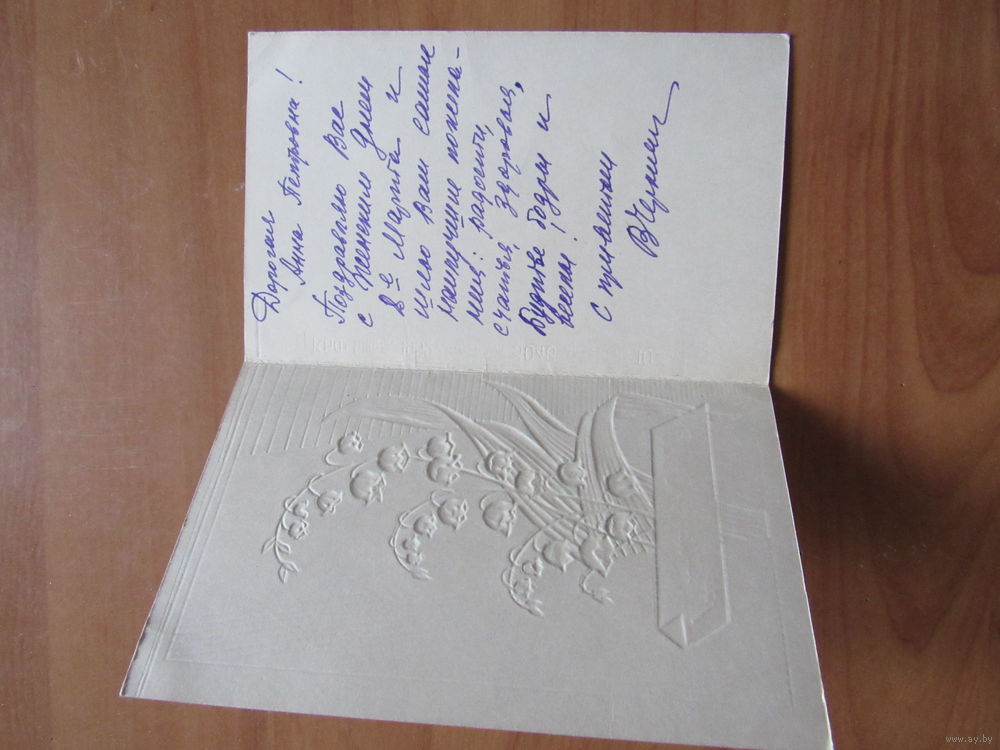 Дорогая
Анна Петровна!
Поздравляю Вас
с Женским днем
8-е Марта и
шлю Вам самые
наилучшие пожела-
ния: радости,
счастья, здоровья,
Будьте бодры и
веселы!
С приветом
ВЧерман
www.ay.by